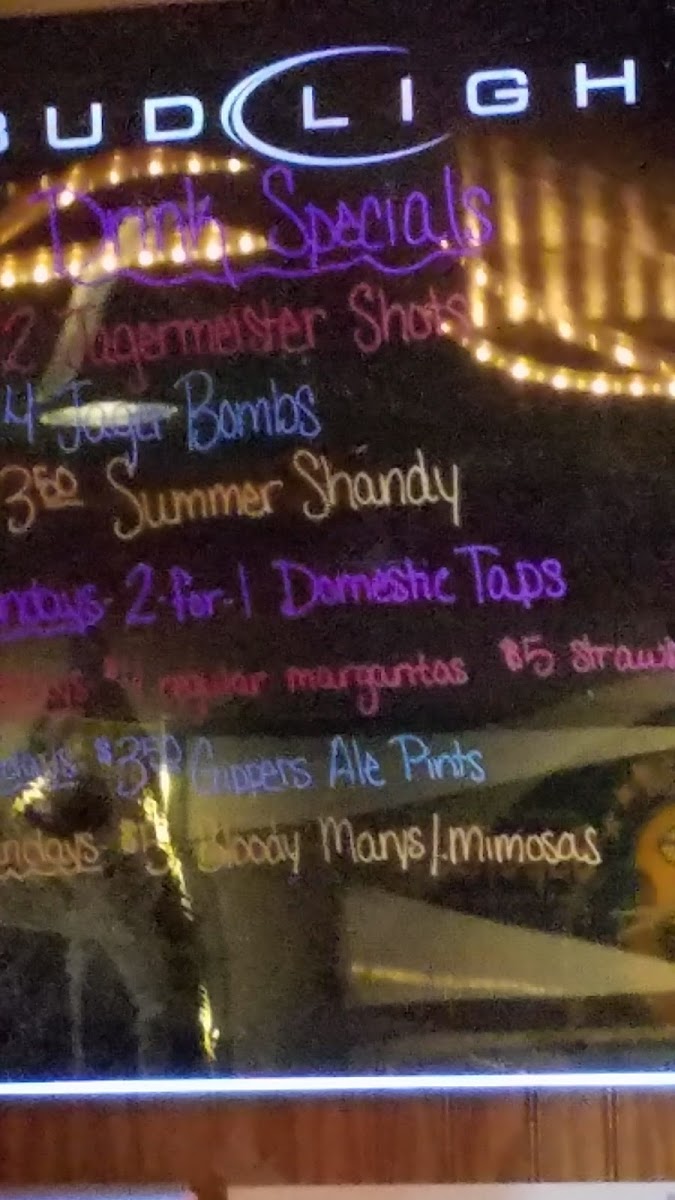 BUD LIGH
Drink Specials
2 Jagermeister Shots
4 Jager Bombs
3 50 Summer Shandy
ndays- 2-for-1 Domestic Taps
regular margaritas $5 straw
$3 50 Cuppers Ale Pints
ndays $5 Bloody Marys/Mimosas